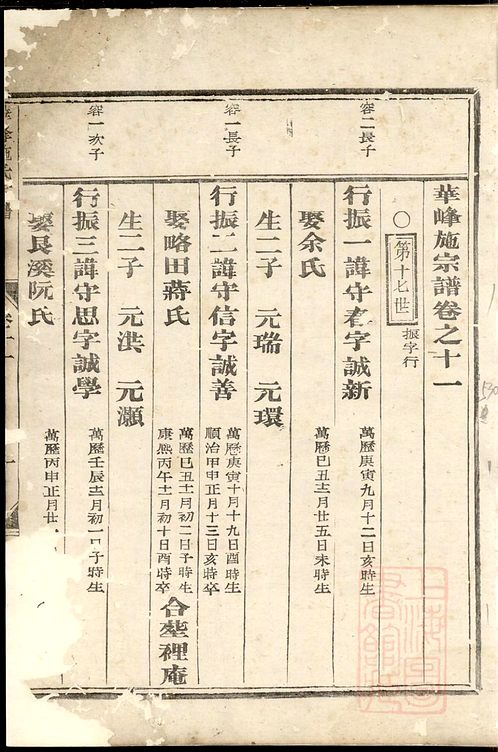 華峰施宗譜卷之十一
○ 第十七世 振字行
容二長子
行振一諱守君字誠新
萬曆庚寅九月十二日亥時生
娶余氏
萬曆己丑十二月廿五日未時生
生二子 元瑞 元環
容一長子
行振二諱守信字誠善
萬曆庚寅十月十九日酉時生
順治甲申正月十三日亥時卒
娶略田蔣氏
萬曆己丑十二月初二日子時生
康熙丙午十二月初十日酉時卒
合塟裡庵
生二子 元洪 元灝
容一次子
行振三諱守思字誠學
萬曆壬辰十二月初一日子時生
娶良溪阮氏
萬曆丙申正月廿